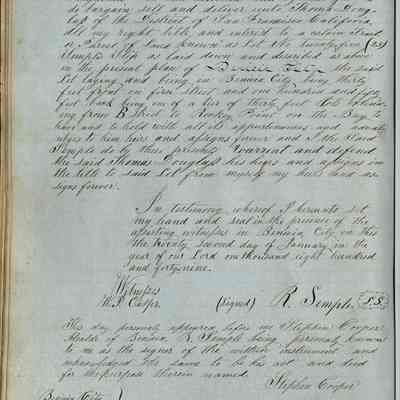 do bargain sell and deliver unto Thomas Doug-
lass of the District of San Francisco California
all my right title and interest to a certain tract
or Parcel of Land known as Lot No twenty five (25)
Semple Slip as laid down and described as above
in the present plan of Benicia City the said
Lot laying and being in Benicia City, being thirty
feet front on first street and one hundred and fifty
feet back being one of a tier of thirty feet Lots extend-
ing from B Street to Rockey Point on the Bay to
have and to hold with all its appurtenances and
to him heirs and assigns forever and I the said
Semple do by these presents Warrent and defend
the said Thomas Douglass his heirs and assigns in
the title to said Lot from myself my heirs and as-
signs forever.
In testimony whereof I hereunto set
my hand and seal in the presence of the
attesting witness in Benicia City on this
the twenty second day of January in the
year of our Lord one thousand eight hundred
and forty nine.
Witness
(Signed) R. Semple L.S.
This day personely appeared before me Stephen Cooper
Alcalde of Benicia R. Semple being personely known
to me as the signer of the within instrument and
acknowledged the same to be his act and deed
for the purpose therein named.
Stephen Cooper
Benicia City )